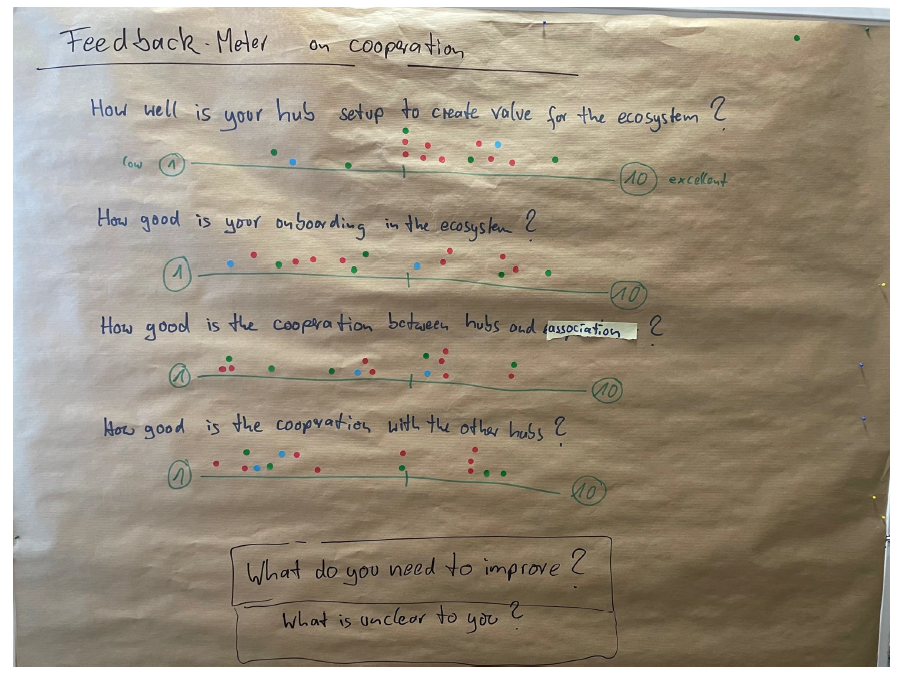 Feedback-Meter on cooperation
How well is your hub setup to create value for the ecosystem?
low 1 10 excellent
How good is your onboarding in the ecosystem?
1 10
How good is the cooperation between hubs and association ?
1 10
How good is the cooperation with the other hubs?
1 10
What do you need to improve?
What is unclear to you?